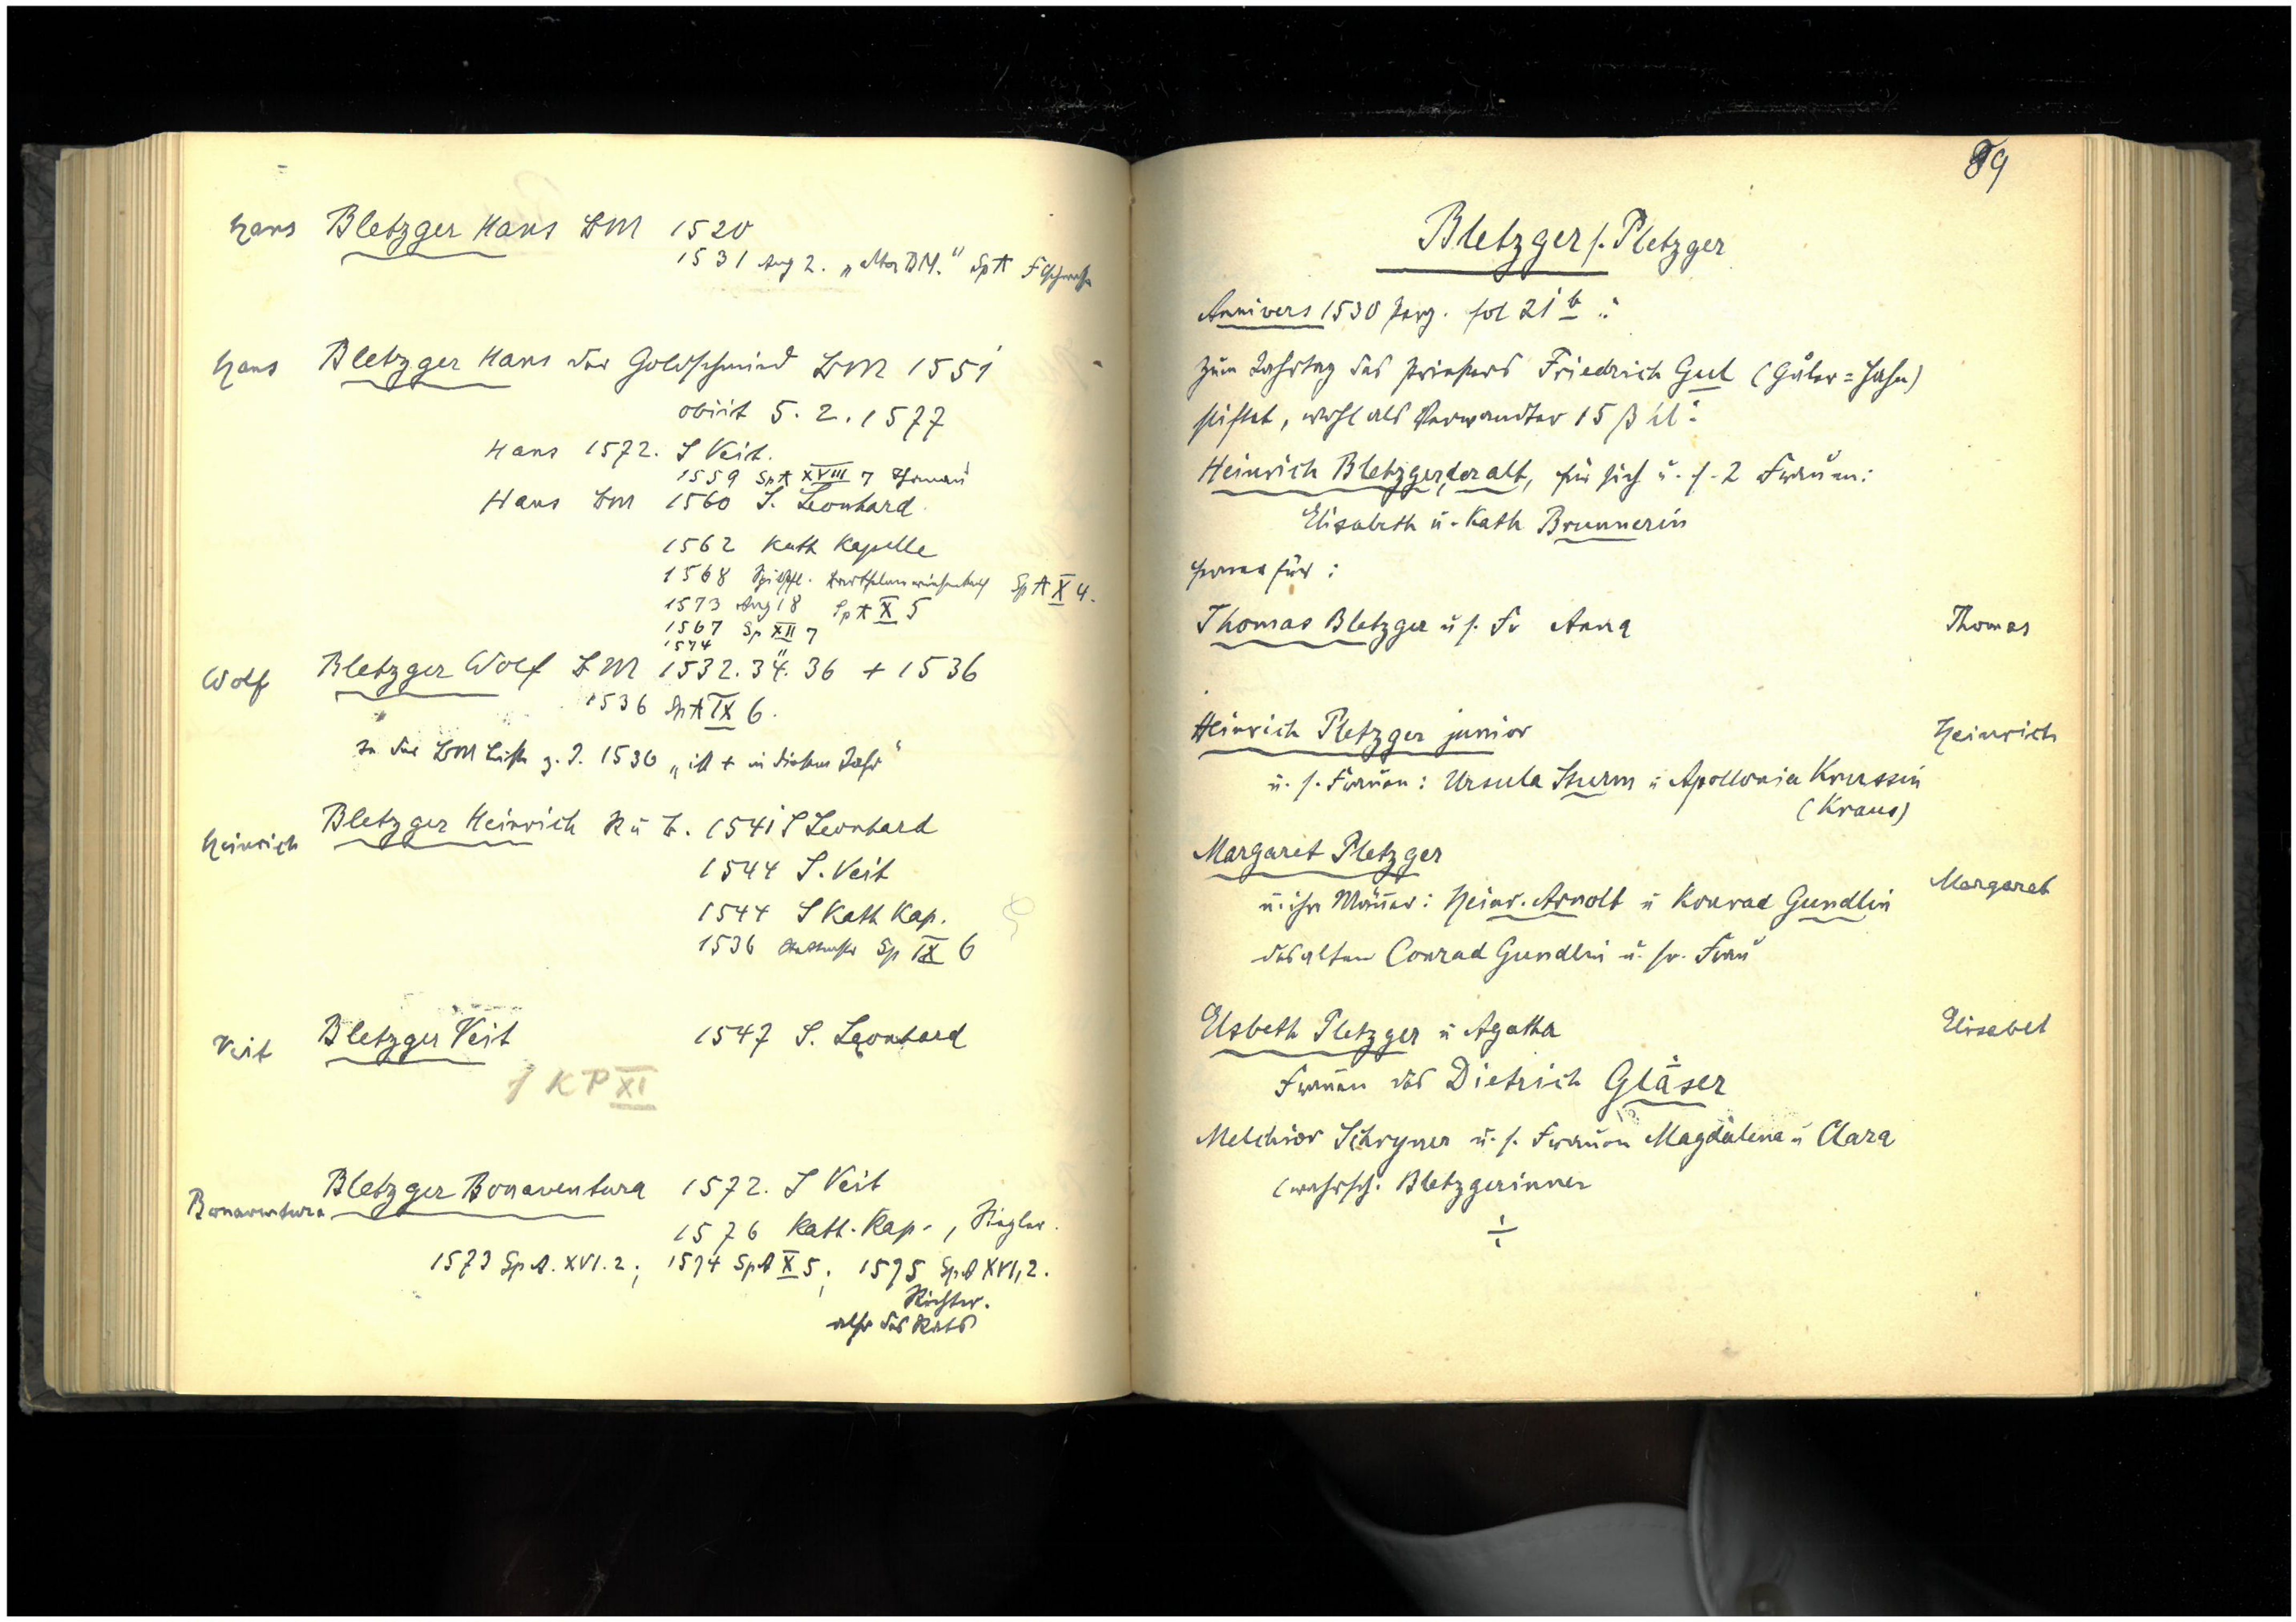 Hans Bletzger Hans BM 1520
1531 Aug 2. „alter BM.“ SpA
Hans Bletzger Hans der Goldschmied BM 1551
obiit 5. 2. 1577
Hans 1572. S Veit.
1559 SpA XVIII 7
Hans BM 1560 S. Leonhard
1562 Kath Kapelle
1568 SpA X 4.
1573 Aug 18 SpA X 5
1567 Sp XII 7
1574 "
Wolf Bletzger Wolf BM 1532. 34. 36 + 1536
1536 SpA IX 6.
In der BM Liste z. J. 1536 „ist + in diesem Jahr“
Heinrich Bletzger Heinrich R u B. 1541 S Leonhard
1544 S. Veit
1544 S Kath Kap.
1536 Sp IX 6
Veit Bletzger Veit 1547 S. Leonhard
f KP XI
Bonaventura Bletzger Bonaventura 1572. S Veit
1576 Kath. Kap., Siegler.
1573 SpA. XVI. 2; 1574 SpA X 5; 1575 SpA XVI, 2.
Richter.
also des Rats
89
Bletzger s. Pletzger
Annivers 1530 Perg. fol 21 b :
Zum Jahrtag des Priesters Friedrich Gul (Guler = Hahn)
stiftet, wohl als Verwandter 15 ß hl:
Heinrich Bletzger, der alt, für sich u. s. 2 Frauen:
Elisabeth u. Kath Brunnerin
ferner für:
Thomas Bletzger u s. Fr Anna Thomas
Heinrich Pletzger junior Heinrich
u. s. Frauen: Ursula Sturm u Apollonia Krussin
(Kraus)
Margaret Pletzger
u. ihre Männer: Heinr. Arnolt u Konrad Gundlin Margaret
des alten Conrad Gundlin u. sr. Frau
Elsbeth Pletzger u Agatha Elisabet
Frauen des Dietrich Gläser
Melchior Schryner u. s. Frauen Magdalena u Clara
(wahrsch. Bletzgerinnen